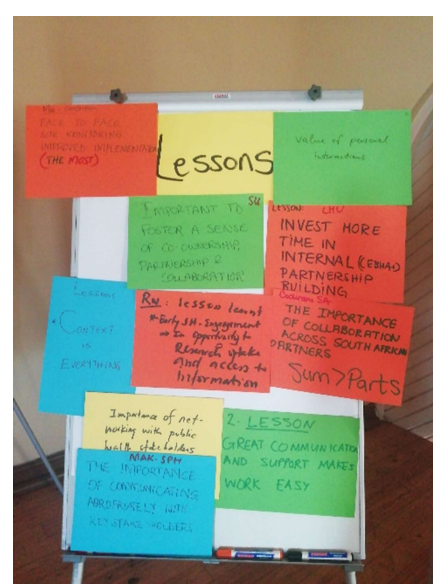 FACE TO FACE
SITE MONITORING
IMPROVED IMPLEMENTATION
(THE MOST)
Lessons
Value of personal
interactions
SU
IMPORTANT TO
FOSTER A SENSE
OF CO-OWNERSHIP,
PARTNERSHIP &
COLLABORATION
LESSON: LMU
INVEST MORE
TIME IN
INTERNAL (CEBHA+)
PARTNERSHIP
BUILDING
Lessons
CONTEXT
IS
EVERYTHING
Rw: lesson learnt
Early SH. Engagement
an opportunity to
Research uptake
and access to
Information
Cochrane SA
THE IMPORTANCE
OF COLLABORATION
ACROSS SOUTH AFRICAN
PARTNERS
Sum > Parts
Importance of net-
working with public
health stakeholders
MAK-SPH
THE IMPORTANCE
OF COMMUNICATING
APPROPRIATELY WITH
KEY STAKE HOLDERS
2. LESSON
GREAT COMMUNICATION
AND SUPPORT MAKES
WORK EASY